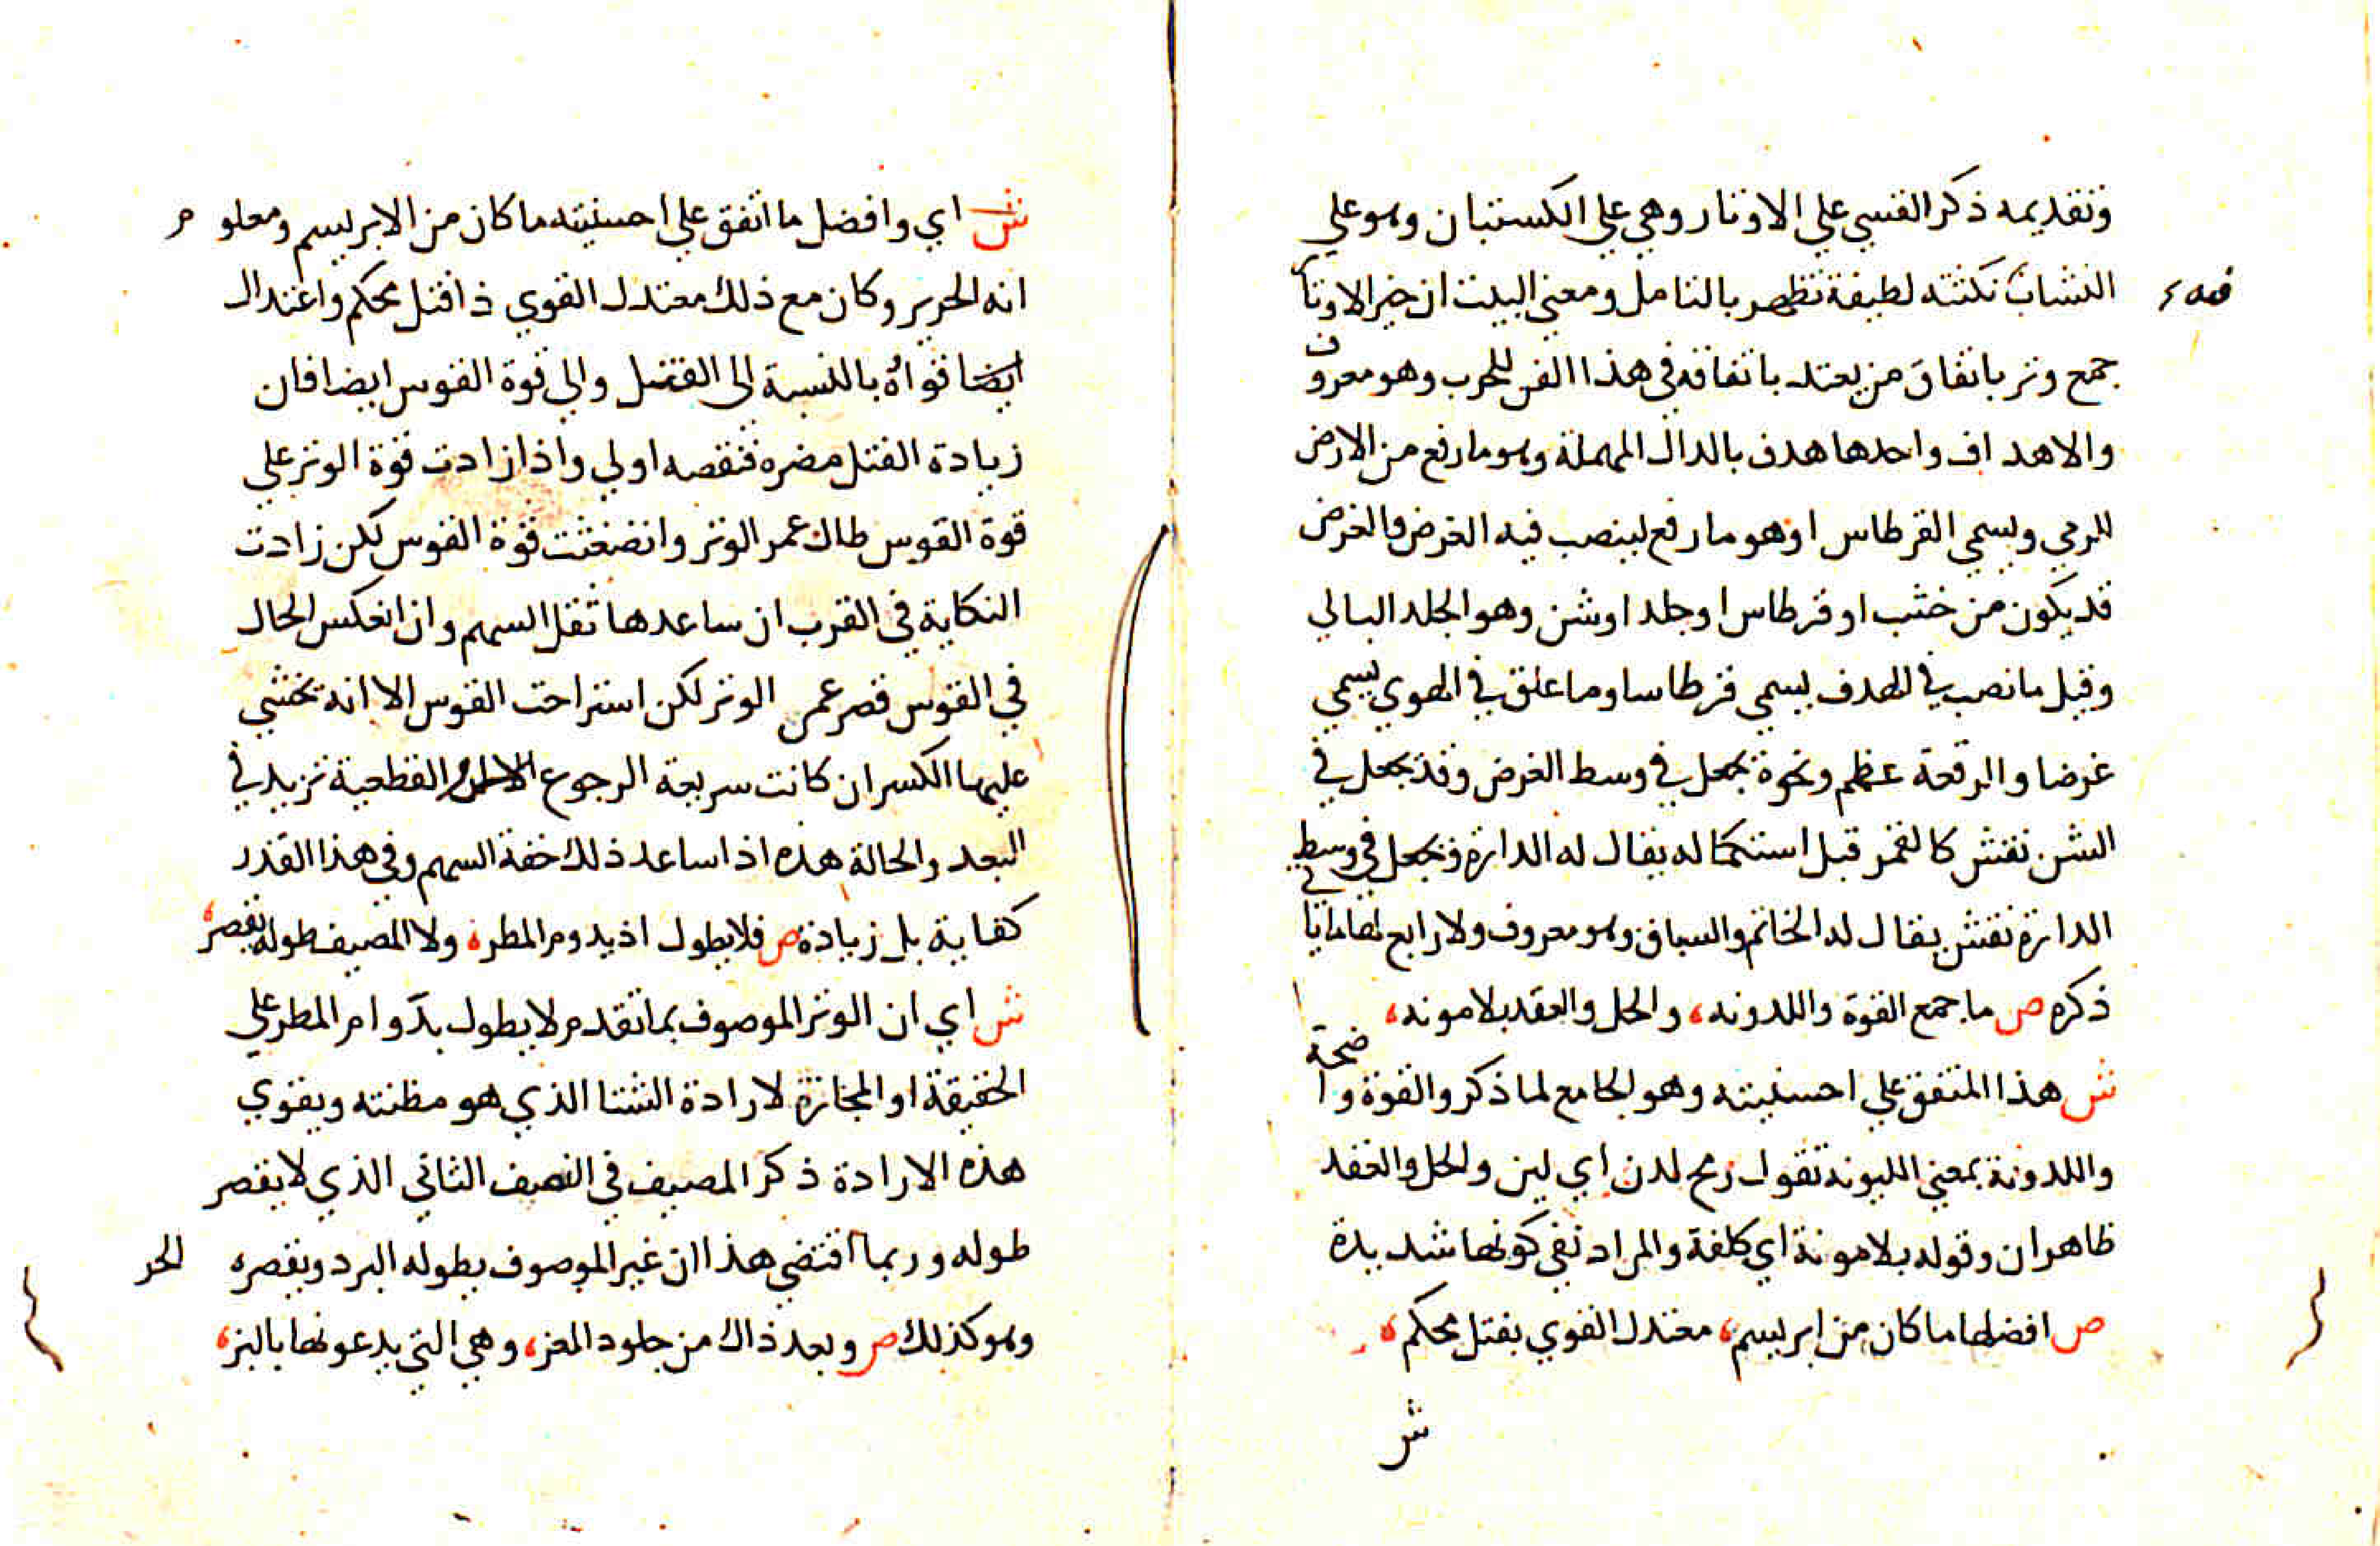 وتقديمه ذكر القسي علي الاوتار وهي علي الكستبان وهو علي
النشاب نكتته لطيفة تظهر بالتامل ومعني البيت ان خير الاوتار
جمع وتر باتفاق من يعتد باتفاقه في هذا الفن للحرب وهو معروف
والاهداف واحدها هدف بالدال المهملة وهو ما رفع من الارض
للرمي ويسمي القرطاس او هو ما رفع لينصب فيه الغرض والغرض
قد يكون من خشب او قرطاس او جلد او شن وهو الجلد البالي
وقيل ما نصب في الهدف يسمي قرطاسا وما علق في الهوي يسمي
غرضا والرقعة عظم ونحوه يجعل في وسط الغرض وقد يجعل في
الشن نقش كالقمر قبل استكماله يقال له الدائرة ويجعل في وسط
الدائرة نقش يقال له الخاتم والسباق وهو معروف ولا رابع لها يأتي
ذكره ص ما جمع القوة واللدونه، والحل والعقد بلا مونه،
ش هذا المتفق علي احسنيته وهو الجامع لما ذكر والقوة واضحة
واللدونة بمعني الليونه تقول رمح لدن اي لين والحل والعقد
ظاهران وقوله بلا مونة اي كلفة والمراد نفي كونها شديدة
ص افضلها ما كان من ابريسم، معتدل القوي بفتل محكم،
ش
ش اي وافضل ما اتفق علي احسنيته ما كان من الابريسم ومعلوم
انه الحرير وكان مع ذلك معتدل القوي ذا فتل محكم واعتدال
قواه بالنسبة الى الفتل والي قوة القوس ايضا فان
زيادة الفتل مضره فنقصه اولي واذا زادت قوة الوتر علي
قوة القوس طال عمر الوتر وانضغثت قوة القوس لكن زادت
النكاية في القرب ان ساعدها ثقل السهم وان انعكس الحال
في القوس قصر عمر الوتر لكن استراحت القوس الا انه يخشي
عليها الكسر ان كانت سريعة الرجوع القطعية تزيد في
البعد والحالة هذه اذا ساعد ذلك خفة السهم وفي هذا القدر
كفاية بل زيادة ص فلا يطول اذ يدوم المطر، ولا المصيف طوله يقصر،
ش اي ان الوتر الموصوف بما تقدم لا يطول بدوام المطر علي
الحقيقة او المجازة لارادة الشتا الذي هو مظنته ويقوي
هذه الارادة ذكر المصيف في النصف الثاني الذي لا يقصر
طوله وربما اقتضي هذا ان غير الموصوف يطوله البرد ويقصره الحر
وهو كذلك ص وبعد ذاك من جلود المعز، وهي التي يدعونها بالبز،